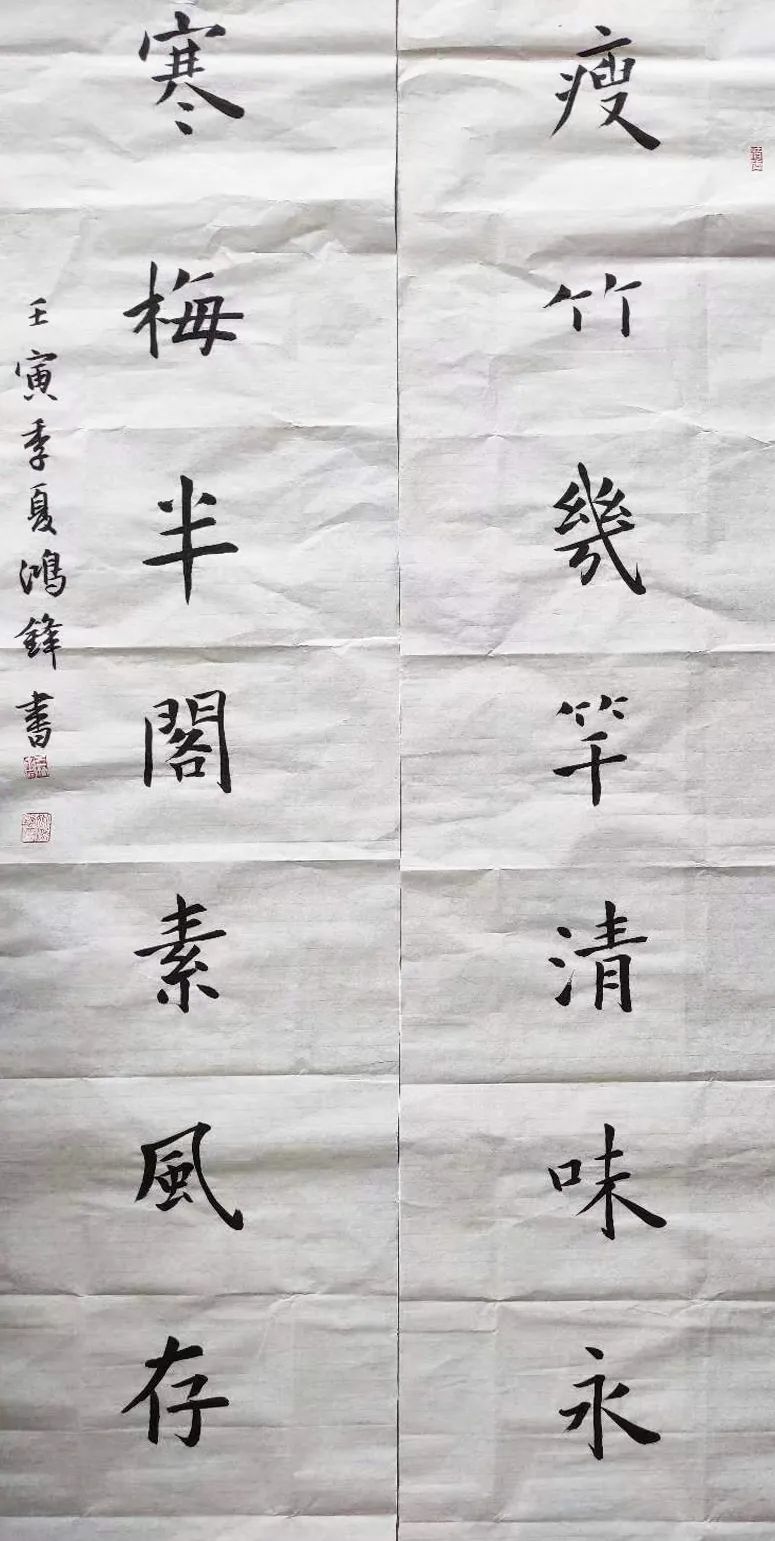 瘦竹幾竿清味永
寒梅半閣素風存
壬寅季夏鴻鋒書